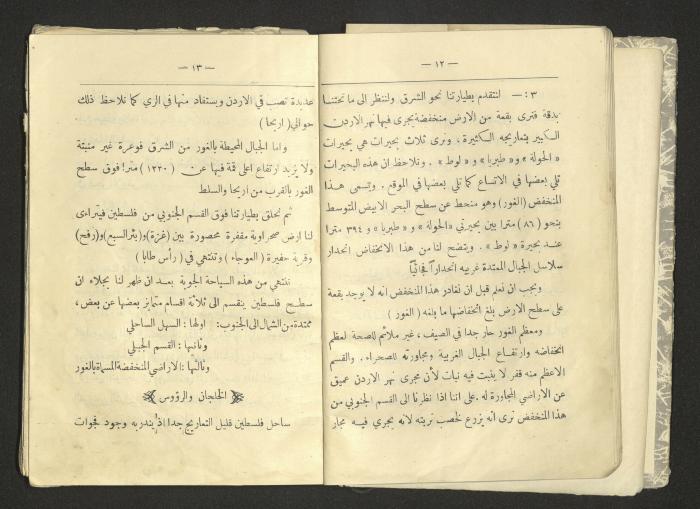 — ١٢ —
٣ : — لنتقدم بطيارتنا نحو الشرق ولننظر الى ما تحتنا
بدقة فترى بقعة من الارض منخفضة يجري فيها نهر الاردن
الكبير بتعاريجه الكثيرة ، ونرى ثلاث بحيرات هي بحيرات
« الحولة » و« طبريا » و « لوط » . ونلاحظ ان هذه البحيرات
تلي بعضها في الاتساع كما تلي بعضها في الموقع . ونسمى هذا
المنخفض (الغور) وهو منحط عن سطح البحر الابيض المتوسط
بنحو (٨٦) مترا بين بحيرتي «الحولة » و « طبريا » و ٣٩٤ مترا
عند بحيرة « لوط » . ويتضح لنا من هذا الانخفاض انحدار
سلاسل الجبال الممتدة غربيه انحداراً فجائياً
ويجب ان نعلم قبل ان نغادر هذا المنخفض انه لا يوجد بقعة
على سطح الارض بلغ انخفاضها ما بلغه ( الغور )
ومعظم الغور حار جدا في الصيف ، غير ملائم للصحة لعظم
انخفاضه وارتفاع الجبال الغربية ومجاورته للصحراء . والقسم
الاعظم منه قفر لا ينبت فيه نبات لأن مجرى نهر الاردن عميق
عن الاراضي المجاورة له . على اننا اذا نظرنا الى القسم الجنوبي من
هذا المنخفض نرى انه يزرع لخصب تربته لانه يجري فيه مجار
— ١٣ —
عديدة تصب في الاردن ويستفاد منها في الري كما نلاحظ ذلك
حوالي ( اريحا )
واما الجبال المحيطة بالغور من الشرق فوعرة غير منبتة
ولا يزيد ارتفاع اعلى قمة فيها عن (١٢٣٠) مترا فوق سطح
الغور بالقرب من اريحا والسلط
ثم نحلق بطيارتنا فوق القسم الجنوبي من فلسطين فيتراءى
لنا ارض صحراوية مقفرة محصورة بين (غزة) و(بئر السبع) و(رفح)
وقرية حفيرة ( العوجاء ) وتنتهي في ( رأس طابا )
ننتهي من هذه السياحة الجوية بعد ان ظهر لنا بجلاء ان
سطح فلسطين ينقسم الى ثلاثة اقسام متمايز بعضها عن بعض ،
ممتدة من الشمال الى الجنوب : اولها : السهل الساحلي
وثانيها : القسم الجبلي
وثالثها : الاراضي المنخفضة المسماة بالغور
الخلجان والرؤوس
ساحل فلسطين قليل التعاريج جدا اذ يندر به وجود فجوات